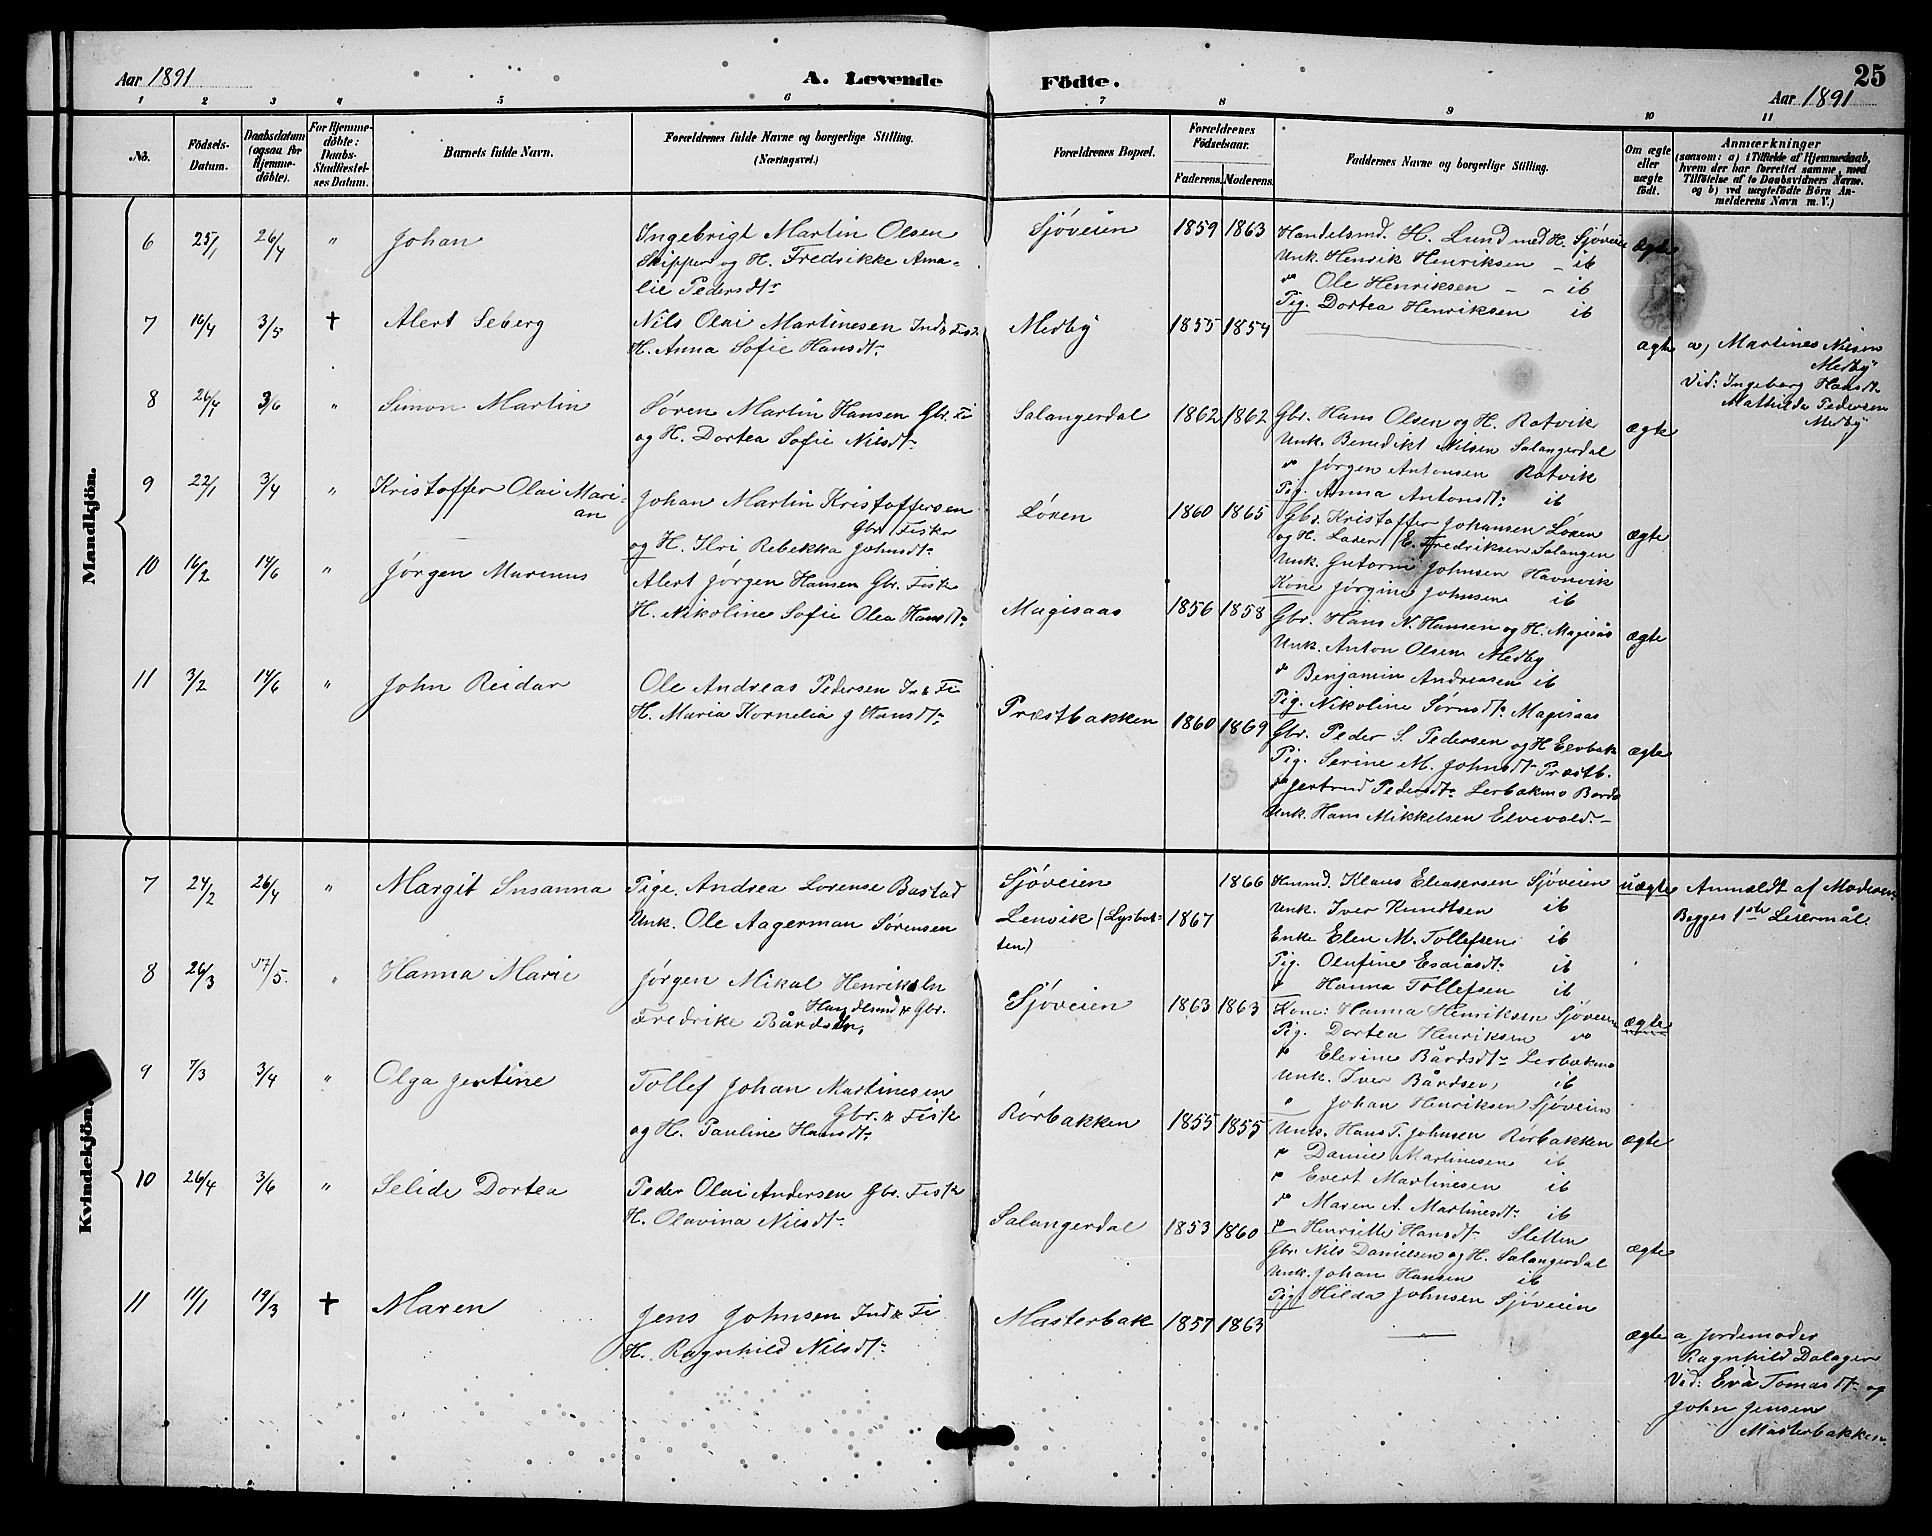 Aar 1891 A. Levende Födte. Aar 1891 25
1 2 3 4 5 6 7 8 9 10 11
No.
Födsels-Datum.
Daabsdatum (ogsaa for Hjemme-döbte).
For Hjemme-döbte: Daabs-Stadfæstel-ses Datum.
Barnets fulde Navn.
Forældrenes fulde Navne og borgerlige Stilling. (Næringsvei.)
Forældrenes Bopæl.
Forældrenes Födselsaar.
Faderens. Moderens.
Faddernes Navne og borgerlige Stilling.
Om ægte eller uægte födt.
Anmærkninger
(saasom: a) i Tilfælde af Hjemmedaab, hvem der har forrettet samme, med Tilföielse af to Daabsvidners Navne, og b) ved uægtefödte Börn Anmelderens Navn m. V.)
Mandkjön.
6 25/1 26/4 " Johan
Ingebrigt Martin Olsen
Skipper og H. Fredrikke Ama-
lie Pedersdtr
Sjöveien 1859 1863
Handelsmd. H. Lund med H. Sjöveien ægte
Unk. Henrik Henriksen - ib
do Ole Henriksen - - ib
Pig. Dortea Henriksen ib
7 16/4 3/5 † Alert Seberg
Nils Olai Martinesen Ind & Fisk
H. Anna Sofie Hansdtr
Medby 1855 1854
ægte a) Martines Nilsen
Medby
Vid: Ingeborg Hansdtr
Mathilda Pedersen
Medby
8 26/4 3/6 " Simon Martin
Sören Martin Hansen Gbr. Fi
og H. Dortea Sofie Nilsdtr
Salangerdal 1862 1862
Gbr. Hans Olsen og H. Rotvik ægte
Unk. Benedikt Nilsen Salangerdal
do Jörgen Antonsen Rotvik
Pig. Anna Antonsdtr ib
9 22/1 3/4 " Kristoffer Olai Mari-
an
Johan Martin Kristoffersen
Gbr. Fisker
og H. Ilri Rebekka Johnsdtr
Löxen 1860 1865
Gbr. Kristoffer Johansen Löxen ægte
og H. Laxen E. Fredriksen Salangen
Unk. Gutorm Johnsen Havnvik
Kone Jörgine Johnsen ib
10 16/2 14/6 " Jörgen Marenus
Alert Jörgen Hansen Gbr. Fisk
H. Nikoline Sofie Olea Hansdtr
Magisaas 1856 1858
Gbr. Hans N. Hansen og H. Magisås ægte
Unk. Anton Olsen Medby
do Benjamin Andreasen ib
Pig. Nikoline Sörnsdtr Magisaas
11 3/2 14/6 " John Reidar
Ole Andreas Pedersen In & Fi
H. Maria Kornelia J Hansdtr
Præstbakken 1860 1869
Gbr. Peder S. Pedersen og H Elvbak ægte
Pig. Serine M. Johnsdtr Præstb.
do Jertrud Pedersdtr Lerbækmo Bardo
Unk. Hans Mikkelsen Elvevold.-
Kvindekjön.
7 24/2 26/4 " Margit Susanna
Pige Andrea Lorense Bostad
Unk. Ole Aagerman Sörensen
Sjöveien 1866
Lenvik (Lysbot- 1867
ten)
Husmd. Klaus Eleasersen Sjöveien
Unk. Iver Knudtsen ib
Enke Elen M. Tollefsen ib
Pig. Olufine Esaiasdtr ib
do Hanna Tollefsen ib
uægte Anmeldt af Moderen
Begges 1ste Leiermål
8 26/3 17/5. " Hanna Marie
Jörgen Mikal Henriksen
Handlsmd & Gbr.
Fredrike Bårdsdtr
Sjöveien 1863 1863
Kone: Hanna Henriksen Sjöveien ægte
Pig. Dortea Henriksen do
do Elerine Bårdsdtr Lerbækmo
Unk. Iver Bårdsen ib
do Johan Henriksen Sjöveien
9 7/3 3/4 " Olga Jentine
Tollef Johan Martinesen
Gbr. & Fisk
og H. Pauline Hansdtr
Rörbakken 1855 1855
Unk. Hans T. Johnsen Rörbakken ægte
do Daniel Martinesen ib
do Evert Martinesen ib
do Maren A. Martinesdtr ib
do Henriette Hansdtr Sletten
10 26/4 3/6 " Selide Dortea
Peder Olai Andersen Gbr. Fisk
H. Olavina Nilsdtr
Salangerdal 1853 1860
Gbr. Nils Danielsen og H. Salangerdal ægte
Unk. Johan Hansen ib
Pig. Hilda Johnsen Sjöveien
11 11/1 19/3 † Maren
Jens Johnsen Ind & Fi
H. Ragnhild Nilsdtr
Masterbak 1857 1863
ægte a, Jordemoder
Ragnhild Dalager
Vid: Eva Tomasdtr og
John Jensen
Masterbakken